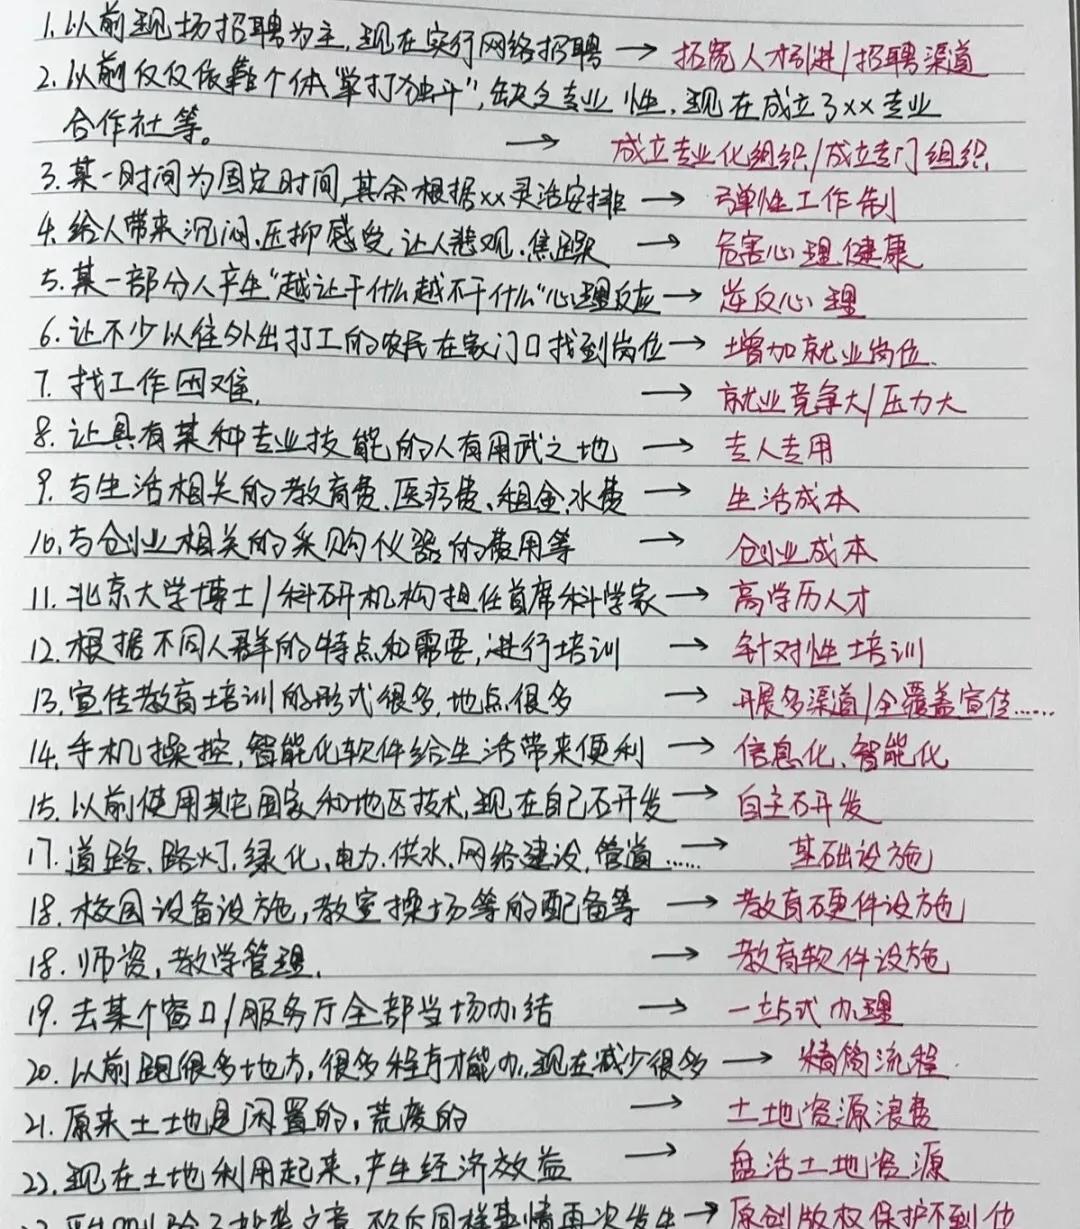 1.以前现场招聘为主,现在实行网络招聘 → 拓宽人才引进/招聘渠道
2.以前仅仅依靠个体"单打独斗",缺乏专业性.现在成立了xx专业
合作社等。 → 成立专业化组织/成立专门组织
3.某一时间为固定时间,其余根据xx灵活安排 → 弹性工作制
4.给人带来沉闷.压抑感受,让人悲观.焦躁 → 危害心理健康
5.某一部分人产生"越让干什么越不干什么"心理反应 → 逆反心理
6.让不少以往外出打工的农民在家门口找到岗位 → 增加就业岗位.
7.找工作困难. → 就业竞争大/压力大
8.让具有某种专业技能的人有用武之地 → 专人专用
9.与生活相关的教育费.医疗费、租金.水费 → 生活成本
10.与创业相关的采购仪器的费用等 → 创业成本
11.北京大学博士/科研机构担任首席科学家 → 高学历人才
12.根据不同人群的特点和需要,进行培训 → 针对性培训
13.宣传教育培训的形式很多,地点很多 → 开展多渠道/全覆盖宣传......
14.手机操控,智能化软件给生活带来便利 → 信息化、智能化
15.以前使用其它国家和地区技术,现在自己研开发 → 自主研开发
17.道路、路灯,绿化、电力.供水.网络建设,管道...... → 基础设施
18.校园设备设施,教室操场等的配备等 → 教育硬件设施
18.师资,教学管理. → 教育软件设施
19.去某个窗口/服务厅全部当场办结 → 一站式办理
20.以前跑很多地方,很多程序才能办,现在减少很多 → 精简流程.
21.原来土地是闲置的,荒废的 → 土地资源浪费
22.现在土地利用起来,产生经济效益 → 盘活土地资源
同样事情再次发生 → 原创版权保护不到位